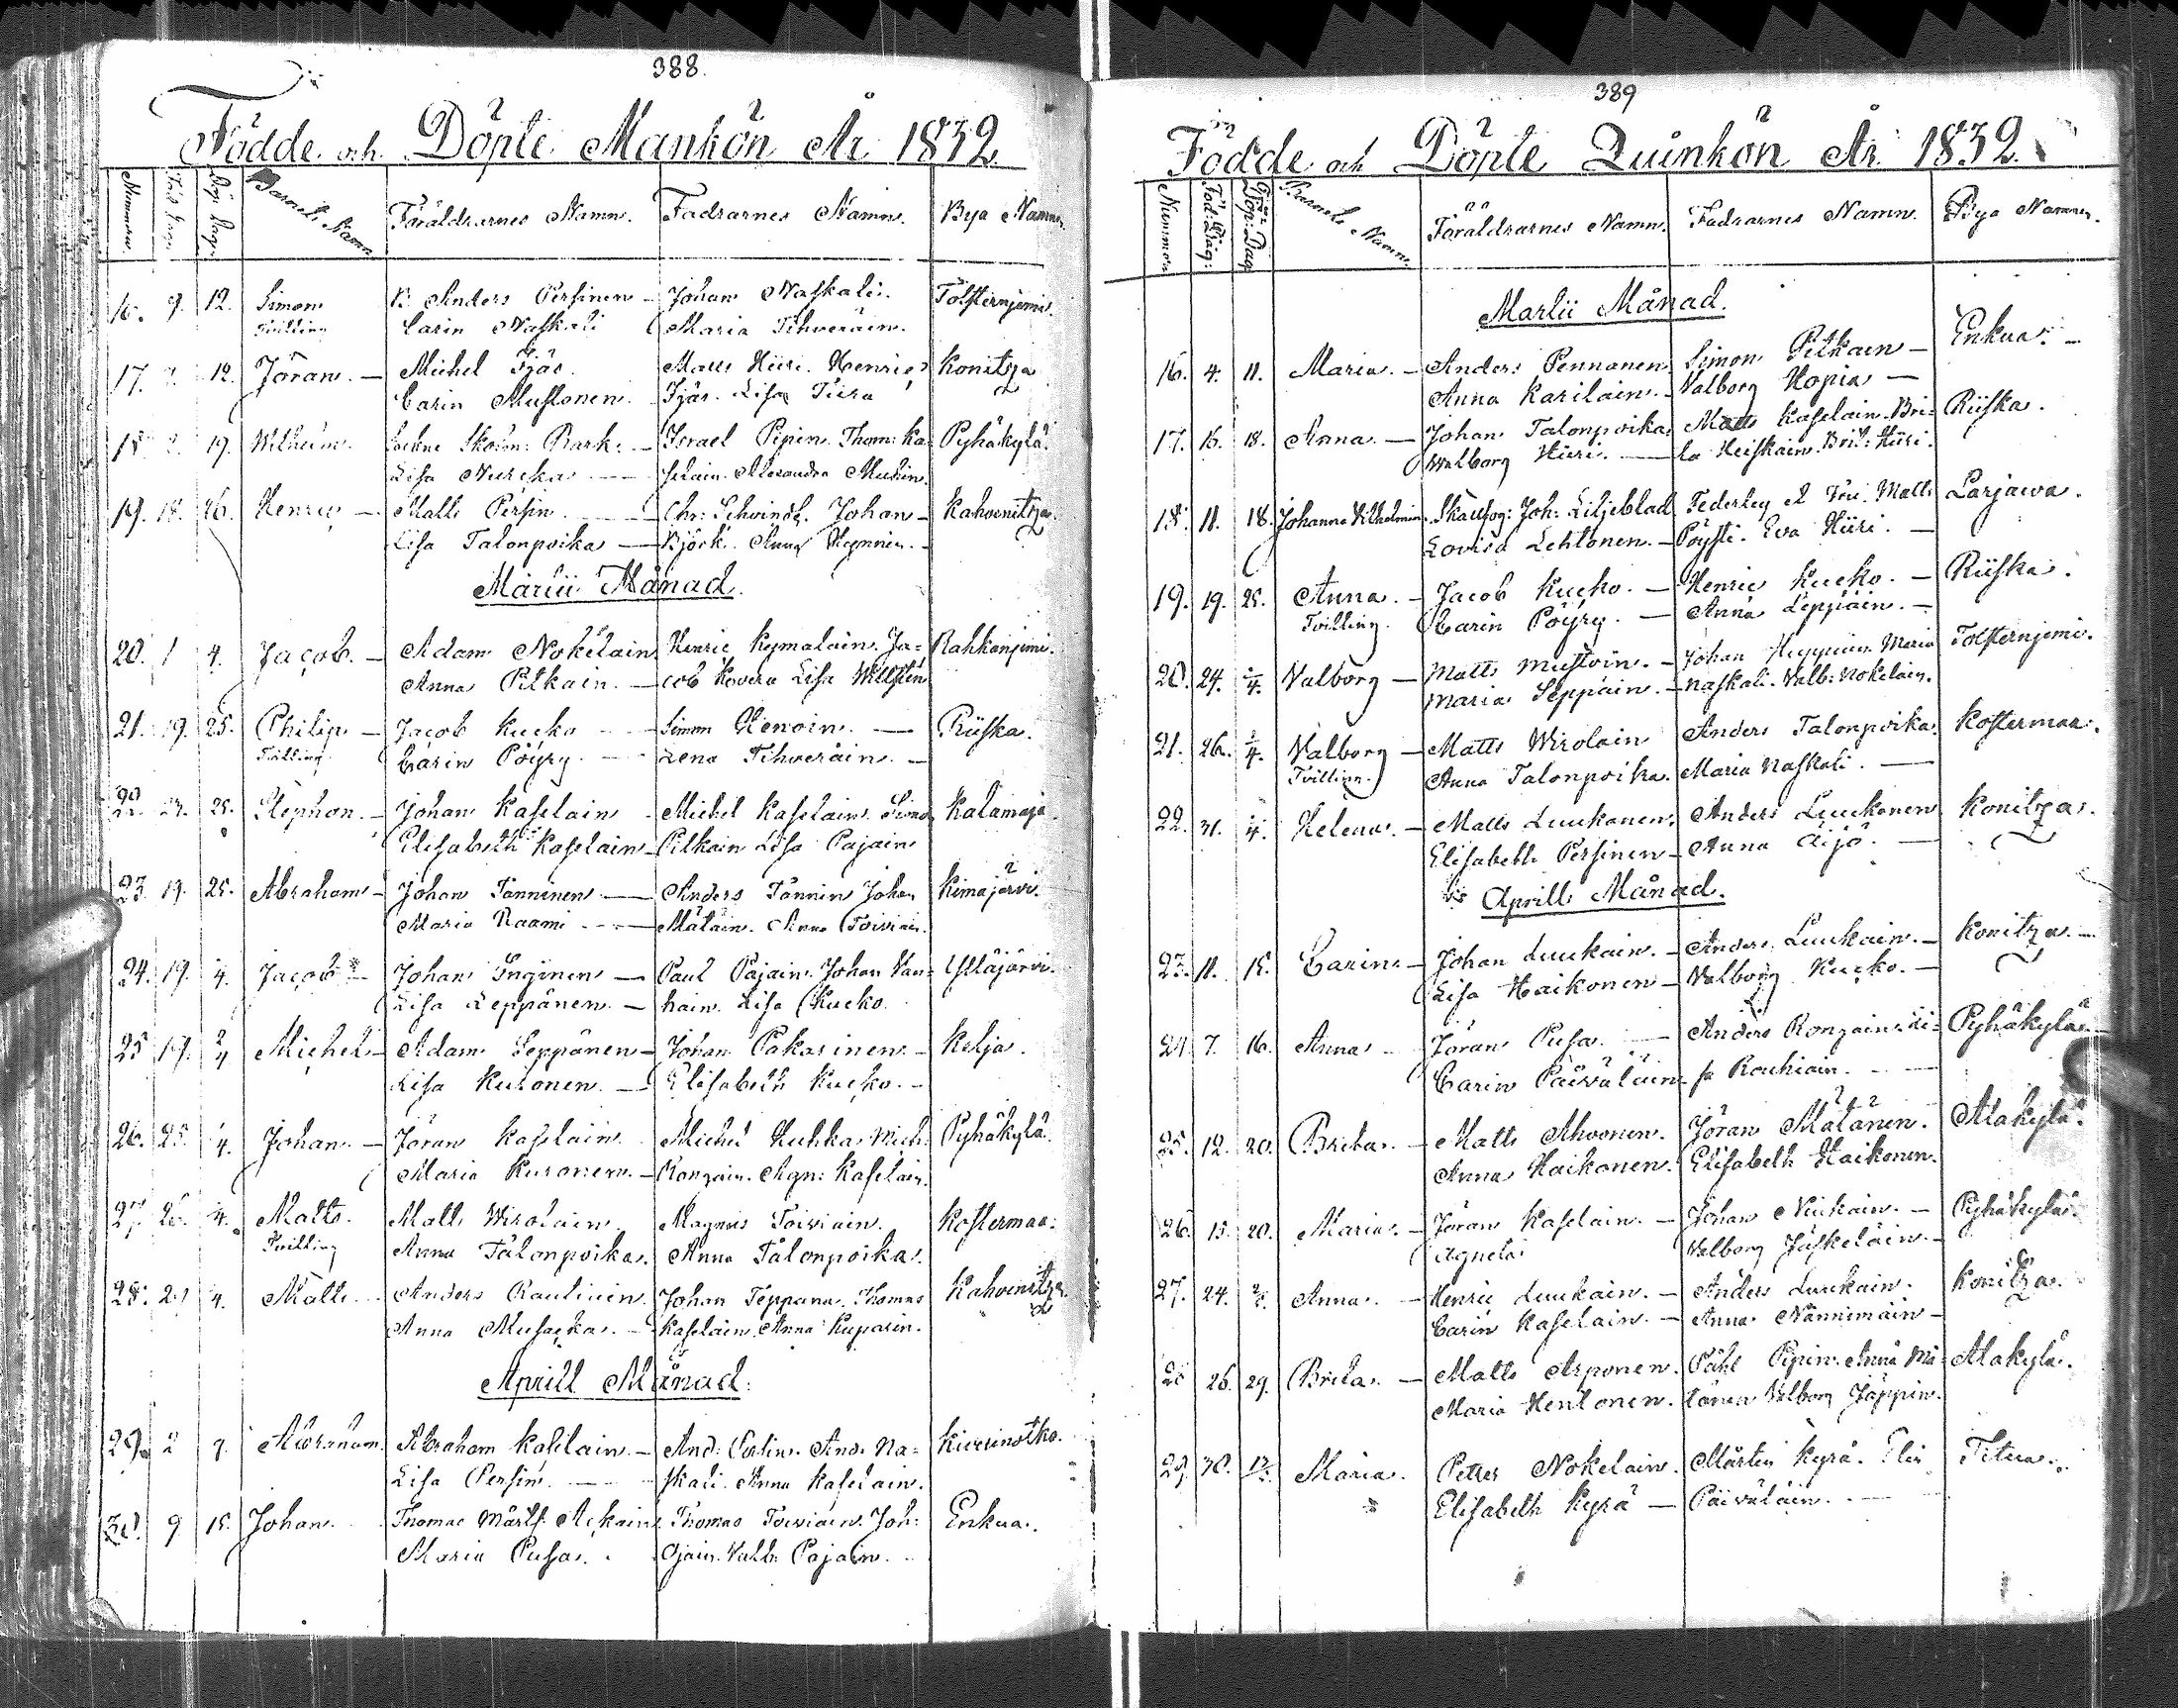 388.
Födde och Döpte Mankön År 1832
Nummern Föd: Dag Döp: Dag Barnets Namn Föräldrarnes Namn. Fadrarnes Namn. Bya Namn
16. 9. 12. Simon B: Anders Persinen Johan Naskali. Tolsternjemi.
Tvilling Carin Naskali Maria Tihveräin.
17. 12. Jöran. — Michel Tjär Matts Hiiri. Henric Konitza
Carin Mustonen. Tjär. Lisa Tiira
18 19. Wilhelm. Sockne Skom: Bark: — Israel Pipin. Thom: Ka= Pyhäkylä.
Lisa Nurcka — selain. Alexandra
19. 18. 26. Henric — Matts Persin — Chr: Schvindt. Johan — Kahvenitza.
Lisa Talonpoika — Björk. Anna Hynnin. —
Martii Månad.
20. 1 4. Jacob. — Adam Nokelain Henric Kymalain. Ja= Rahkonjemi.
Anna Pitkain. — cob Kovera Lisa Willstén
21. 19. 25. Philip — Jacob Kucko — Simon Henoin. — Riiska.
Tvilling Carin Pöyry — Lena Tihveräin. —
22 25. Stephan. — Johan Kaselain Michel Kaselain. Simo Kalamaja
Elisabeth Kaselain — Pitkain Lisa Pajain
23. 19. 25. Abraham — Johan Tanninen — Anders Tannin Johan Kimajärvi.
Maria Raami — Mätäin. Anna Toiviain.
24. 19. /4. Jacob — Johan Inginen — Paul Pajain. Johan Van= Ylläjärvi.
Lisa Leppänen. — hain. Lisa Kucko.
25 19. 2/4 Michel — Adam Seppänen — Johan Pakarinen. — Kelja.
Lisa Kuronen. — Elisabeth Kucko. —
26. 25. /4. Johan — Jöran Kaselain. Michel Huhka. Mich: Pyhäkylä.
Maria Kuronen. — Ronzain. Agn: Kaselain.
27. 26. /4. Matts. Matts Wirolain Magnus Toiviain. Kostermaa.
Tvilling Anna Talonpoika. Anna Talonpoika.
28. /4. Matts — Anders Rautiain. Johan Teppana. Thomas Kahvenitza
Anna Musacka. — Kaselain. Anna Kuparin.
Aprill Månad.
29. 2 Abraham. Abraham Kaselain. — And: And: Na= Kiurinotko.
Lisa Persin. — skali. Anna Kaselain.
30. 9 15. Johan. Thomas Mårts: Ackain Thomas Toiviain. Joh: Enkua.
Maria Pusa. Ojain. Valb: Pajain.
389
Födde och Döpte Quinkön År 1832.
Nummern Föd: Dag: Döp: Dag Barnets Namn. Föräldrarnes Namn. Fadrarnes Namn. Bya Namnen.
Martii Månad.
16. 4. 11. Maria. — Anders Pennanen Simon Pitkaen — Enkua. —
Anna Karilain. — Valborg Hopia —
17. 16. 18. Anna. — Johan Talonpoika Matts Kaselain. Bri= Riiska.
Walborg Hiiri. — ta Heiskain. Brit: Hiiri.
18. 11. 18. Johanna Vilhelmin. Joh: Liljeblad Federley Matts Larjawa.
Lovisa Lehtonen. — Pöysti. Eva Hiiri. —
19. 19. 25. Anna. — Jacob Kucko. — Henric Kucko. — Riiska.
Tvilling. Carin Pöyry. — Anna Leppäin. —
20. 24. /4. Valborg — Matts Mustoin. — Johan Hynnin. Maria Tolsternjemi.
Maria Seppäin. — Naskali. Valb: Nokelain.
21. 26. /4. Valborg — Matts Wirolain Anders Talonpoika. Kostermaa.
Tvilling. Anna Talonpoika. Maria Naskali. —
22. 31. /4. Helena. — Matts Luukonen. Anders Luukonen Konitza.
Elisabeth Persinen — Anna Äijö. —
Aprill Månad.
23. 11. 15. Carin. — Johan Luukain. — Anders Luukain. — Konitza. —
Lisa Haikonen — Valborg Kucko. —
24. 7. 16. Anna — Jöran Pusa. — Anders Ronzain. Li= Pyhäkylä.
Carin Päiväläin — sa Rouhiain. —
25. 12. 20. Brita. — Matts Ahvonen. Jöran Mätänen. Alakylä.
Anna Haikonen. Elisabeth Haikonen.
26. 15. 20. Maria. — Jöran Kaselain. — Johan Niukain. — Pyhäkylä.
Agneta Valborg Jäskeläin. —
27. 24. Anna. — Henric Luukain. — Anders Luukain. Konitza.
Carin Kaselain. — Anna Nännimäin —
28 26. 29. Brita. — Matts Arponen. Påhl Pipin. Anna Mä= Alakylä.
Maria Hentonen. tänen Valborg Jäppin.
29. 30. Maria. Petter Nokelain. Mårten Kyrä. Titua.
Elisabeth Kyrä — Päiväläin. —